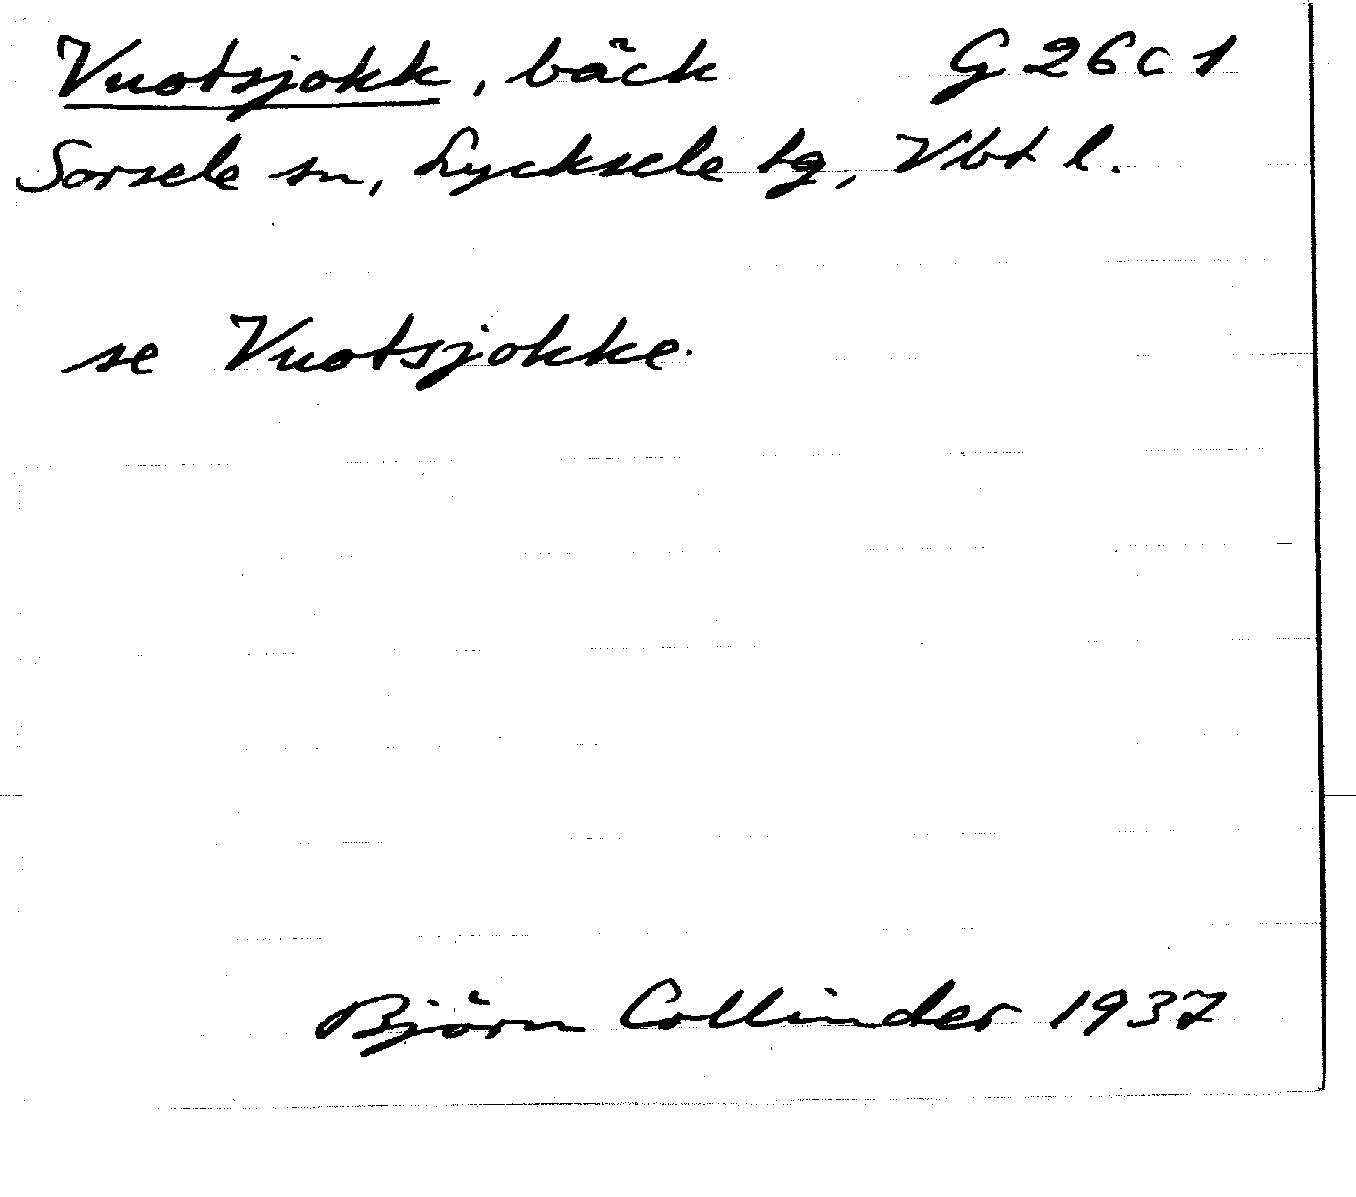 Vuotsjokk, bäck G 26 c 1
Sorsele sn, Lycksele tg, Vbt l.
se Vuotsjokke.
Björn Collinder 1937